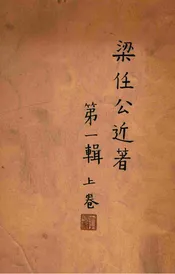 梁任公近著
第一輯上卷